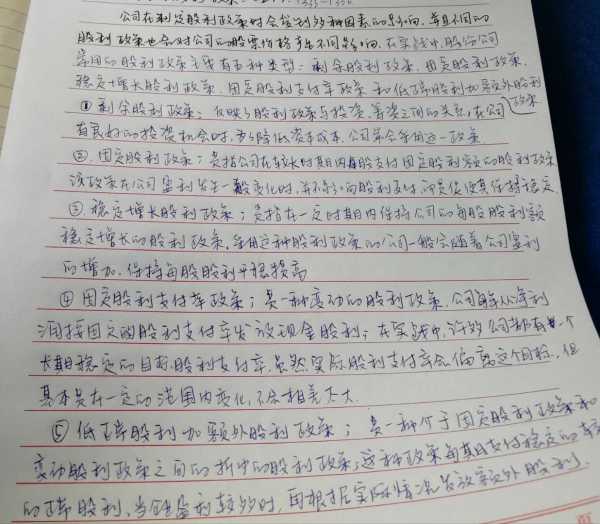 公司在制定股利政策时会受到多种因素的影响,并且不同的
股利政策也会对公司的股票价格产生不同影响,在实践中,股份公司
常用的股利政策主要有五种类型:剩余股利政策、固定股利政策、
稳定增长股利政策、固定股利支付率政策和低正常股利加额外股利
政策
①剩余股利政策:反映了股利政策与投资、筹资之间的关系,在公司
有良好的投资机会时,为了降低资本成本,公司常会采用这一政策
②.固定股利政策:是指公司在较长时期内每股支付固定股利额的股利政策
该政策在公司盈利发生一般变化时,并不影响股利支付,而是使其保持稳定
③稳定增长股利政策:是指在一定时期内保持公司的每股股利额
稳定增长的股利政策,采用这种股利政策的公司一般会随着公司盈利
的增加,保持每股股利平稳提高
④固定股利支付率政策:是一种变动的股利政策,公司每年从净利
润按固定的股利支付率发放现金股利;在实践中,许多公司都有一个
长期稳定的目标股利支付率,虽然实际股利支付率会偏离这个目标,但
基本是在一定的范围内变化,不会相差太大.
⑤低正常股利加额外股利政策:是一种介于固定股利政策和
变动股利政策之间的折中的股利政策,这种政策每期支付稳定的较
的正常股利,当企盈利较多时,再根据实际情况发放额外股利.